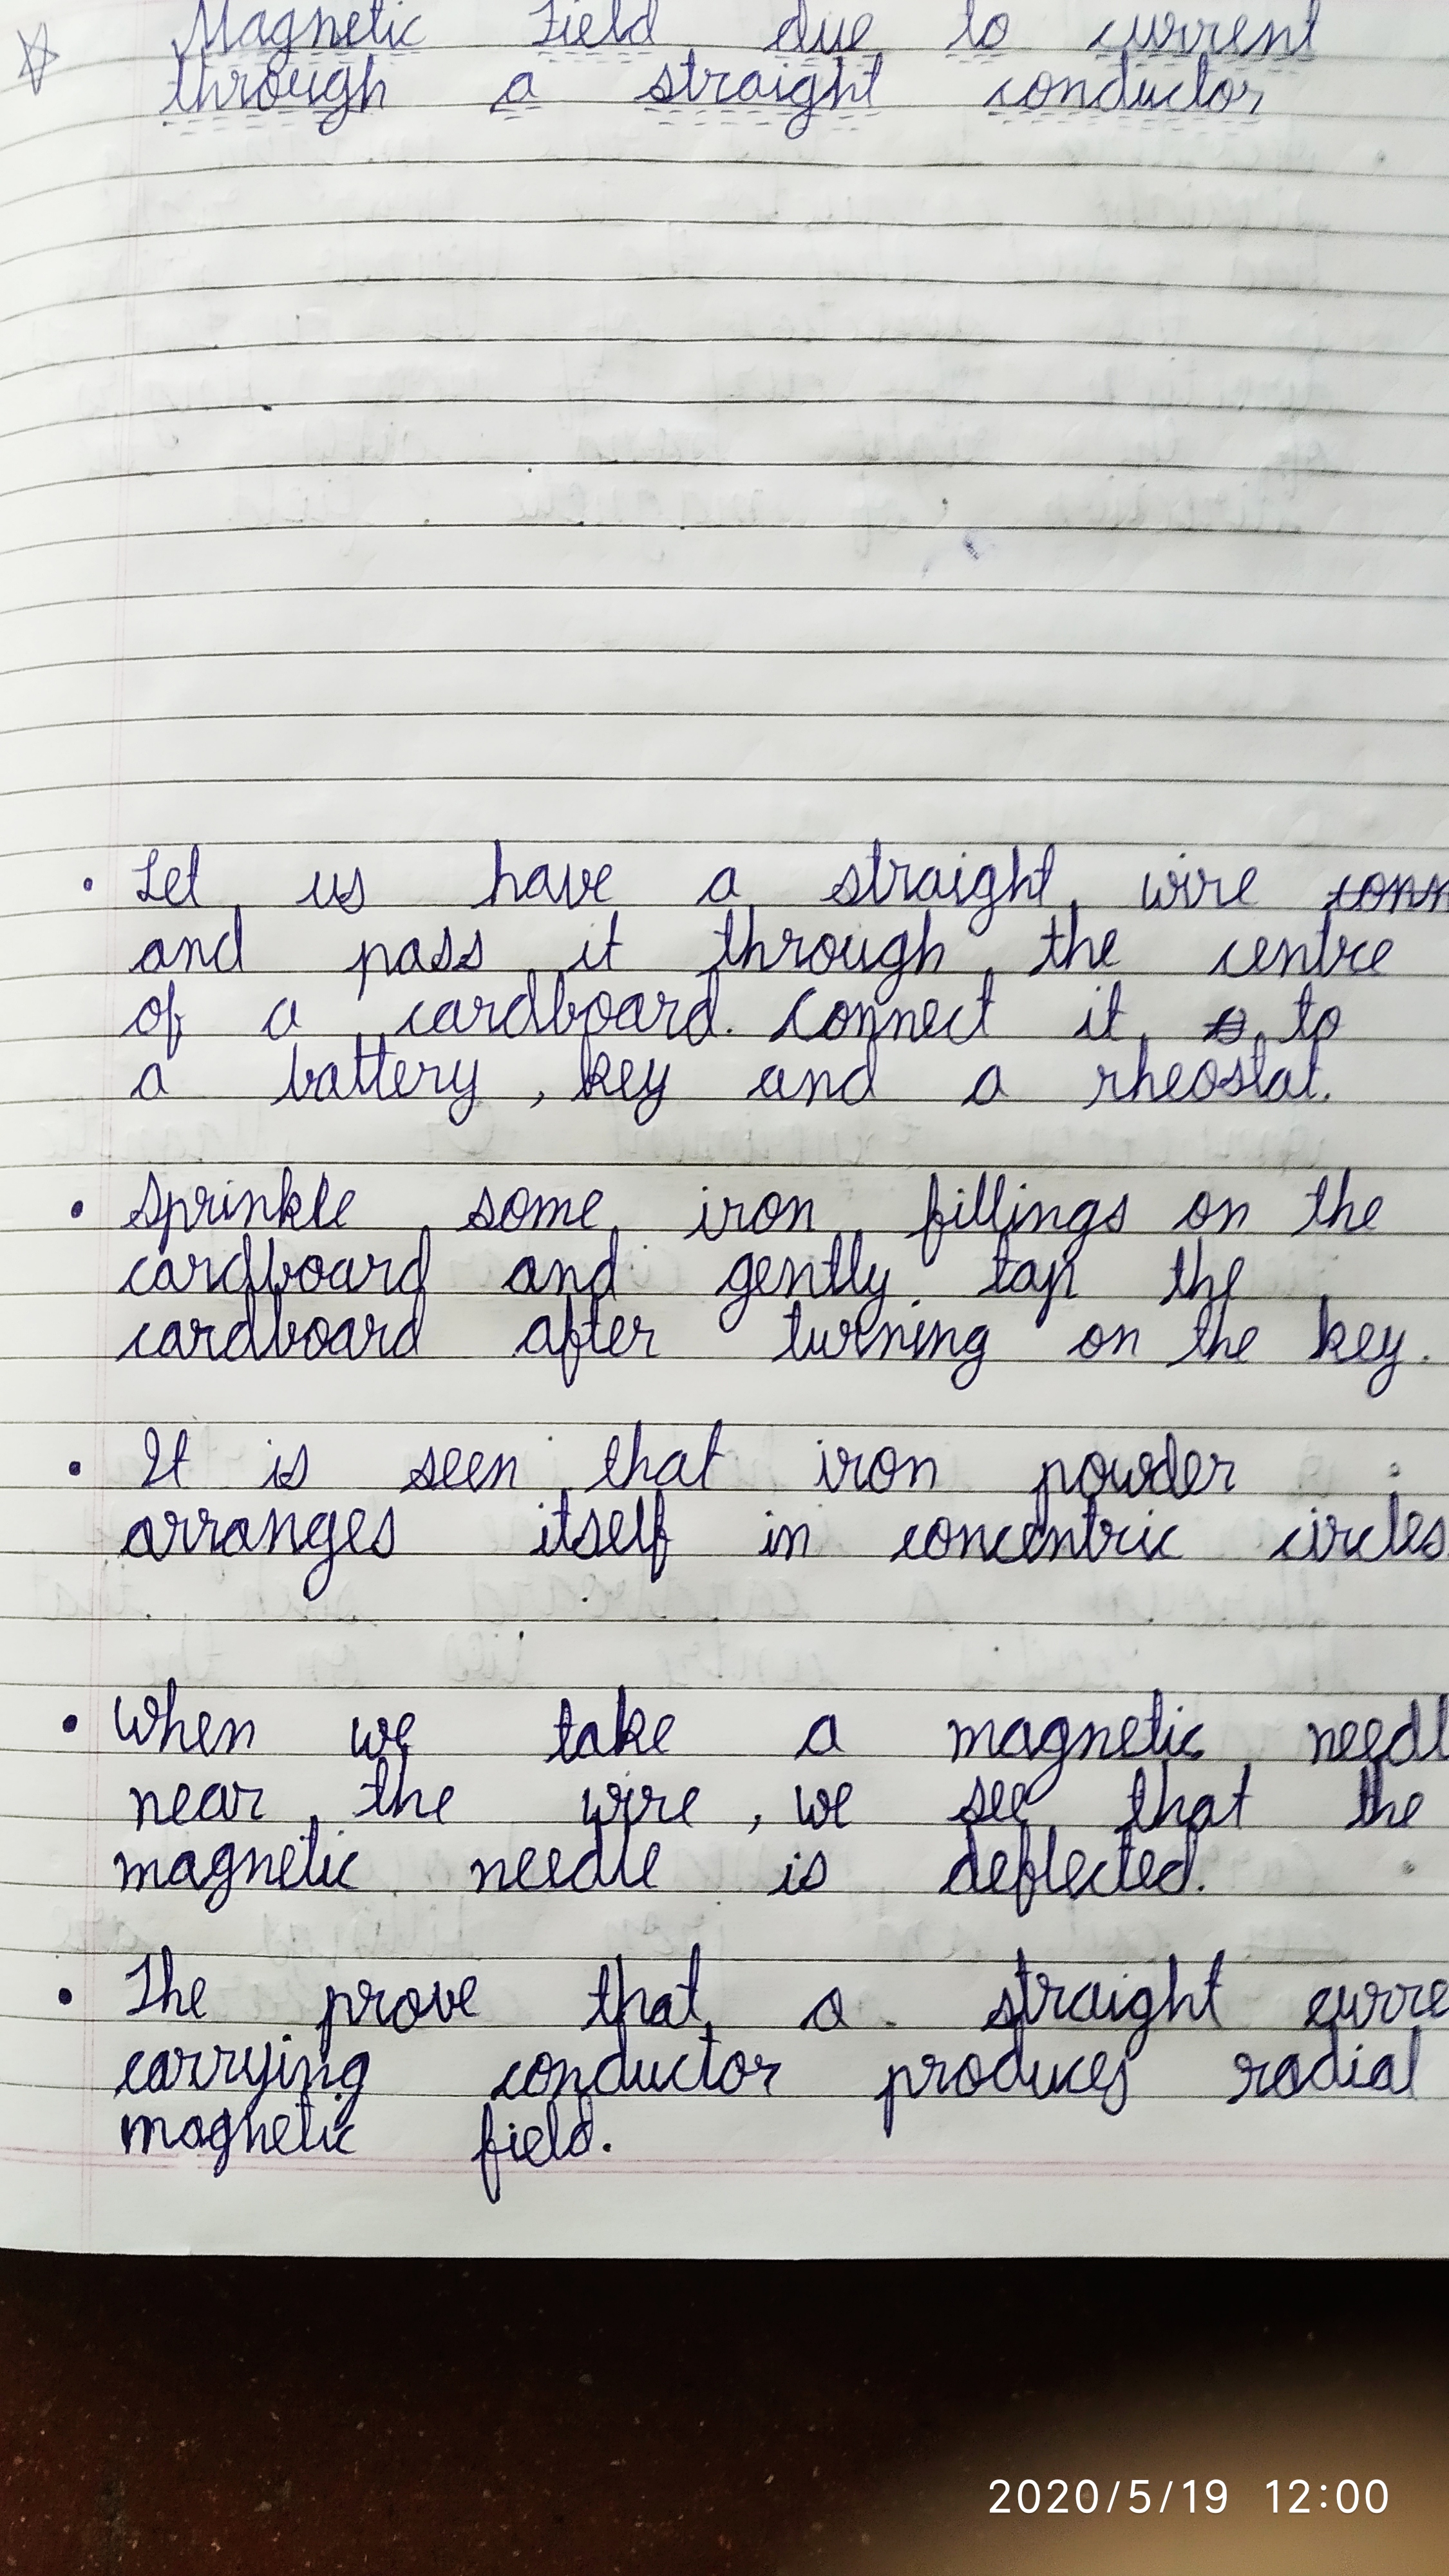 Magnetic Field due to current
through a straight conductor
• Let us have a straight wire
and pass it through the centre
of a cardboard. Connect it to
a battery, key and a rheostat.
• Sprinkle some iron fillings on the
cardboard and gently tap the
cardboard after turning on the key.
• It is seen that iron powder
arranges itself in concentric circles
• When we take a magnetic needl
near the wire, we see that the
magnetic needle is deflected.
• The prove that a straight curre
carrying conductor produces radial
magnetic field.
2020/5/19 12:00